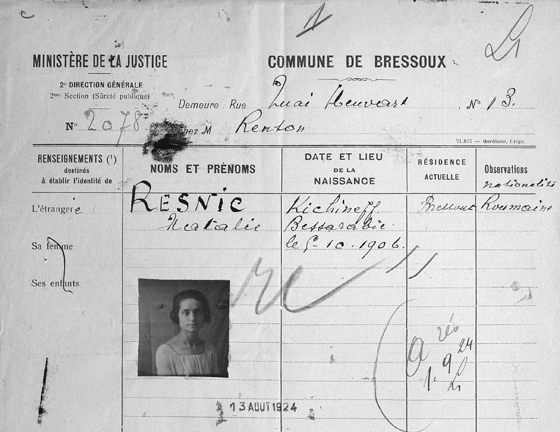 MINISTÈRE DE LA JUSTICE
2e DIRECTION GÉNÉRALE
2me Section (Sûreté publique)
No 2078
COMMUNE DE BRESSOUX
Demeure Rue Quai Heuvart No 13.
chez M Renson
71.857 — Gordinne, Liége.
RENSEIGNEMENTS (1)
destinés
à établir l'identité de
NOMS ET PRÉNOMS
DATE ET LIEU
DE LA
NAISSANCE
RÉSIDENCE
ACTUELLE
Observations
nationalité
L'étrangère
RESNIC
Natalie
Kichineff
Bessarabie
le 5-10-1906.
Bressoux
Roumaine
Sa femme
Ses enfants
1.9.24
13 AOUT 1924